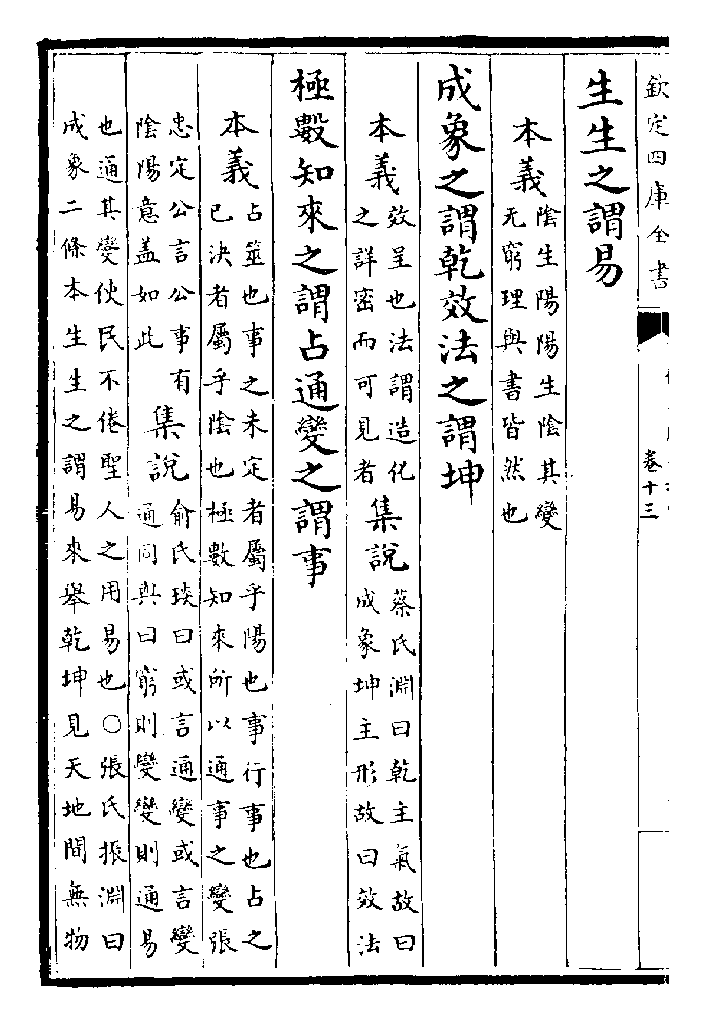 欽定四庫全書
卷十三
生生之謂易
本義
陰生陽陽生陰其變
无窮理與書皆然也
成象之謂乾效法之謂坤
本義
效呈也法謂造化
之詳密而可見者
集說
蔡氏淵曰乾主氣故曰
成象坤主形故曰效法
極數知來之謂占通變之謂事
本義
占筮也事之未定者屬乎陽也事行事也占之
已決者屬乎陰也極數知來所以通事之變張
忠定公言公事有
陰陽意盖如此
集說
俞氏琰曰或言通變或言變
通同與曰窮則變變則通易
也通其變使民不倦聖人之用易也○張氏振淵曰
成象二條本生生之謂易來舉乾坤見天地間無物